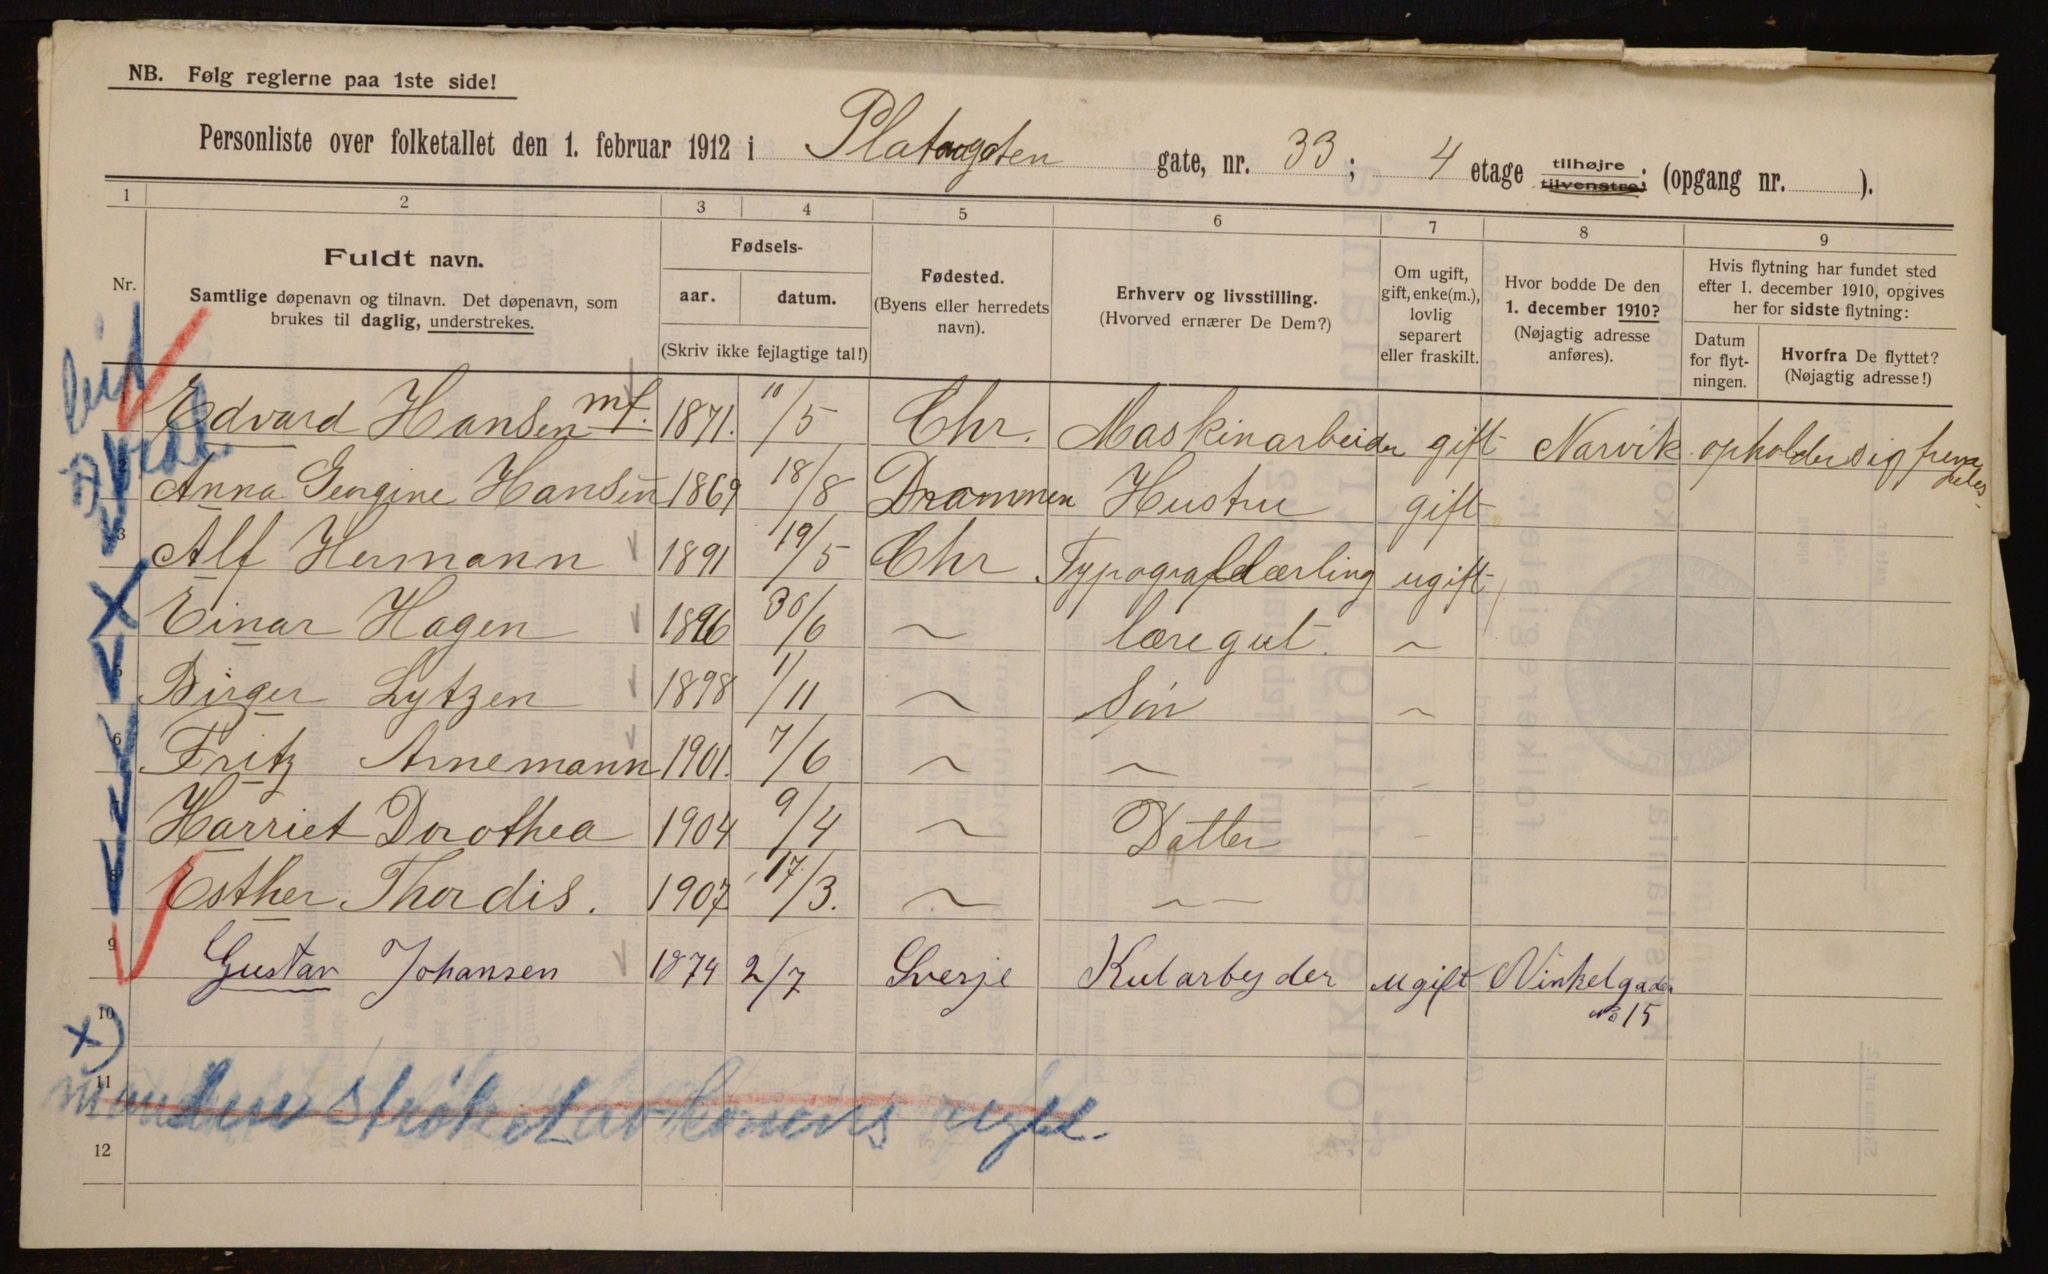 NB. Følg reglerne paa 1ste side!
Personliste over folketallet den 1. februar 1912 i Platougaten gate, nr. 33; 4 etage tilhøjre tilvenstre; (opgang nr. ).
1 2 3 4 5 6 7 8 9
Nr.
Fuldt navn.
Samtlige døpenavn og tilnavn. Det døpenavn, som
brukes til daglig, understrekes.
Fødsels-
aar. datum.
(Skriv ikke fejlagtige tal!)
Fødested.
(Byens eller herredets
navn).
Erhverv og livsstilling.
(Hvorved ernærer De Dem?)
Om ugift,
gift, enke(m.),
lovlig
separert
eller fraskilt.
Hvor bodde De den
1. december 1910?
(Nøjagtig adresse
anføres).
Hvis flytning har fundet sted
efter 1. december 1910, opgives
her for sidste flytning:
Datum
for flyt-
ningen.
Hvorfra De flyttet?
(Nøjagtig adresse!)
Edvard Hansen mf. 1871. 10/5 Chr. Maskinarbeider gift Narvik opholder sig
Anna Georgine Hansen 1869 18/8 Drammen Hustru gift
3 Alf Hermann 1891 19/5 Chr Typograflærling ugift
Einar Hagen 1896 30/6 ~ læregut. ~
5 Birger Lytzen 1898 1/11 ~ Søn ~
6 Fritz Arnemann 1901. 7/6 ~ ~
Harriet Dorothea 1904 9/4 ~ Datter -
8 Esther Thordis. 1907 17/3. ~ ~
9 Gustav Johansen 1874 2/7 Sverje Kularbejder ugift Vinkelgaden
No 15
10
x)
11
manden strøket av konens
12